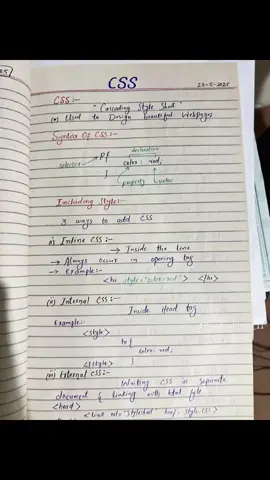 CSS
22-5-2025
CSS:-
"Cascading Style Sheet"
(*) Used to Design beautiful Webpages
Syntax Of CSS:-
declaration
selector
p{
color: red;
}
property
value
Including Styles:-
3 ways to add CSS
i) Inline CSS:-
→ Inside the line
→ Always occur in opening tag
→ Example:-
<h1 style="color:red"> </h1>
(ii) Internal CSS:-
Inside Head tag
Example:-
<style>
h1{
color: red;
}
</style>
(iii) External CSS:-
Writing CSS in separate
document & linking with html file
<head>
<link rel="Stylesheet" href=